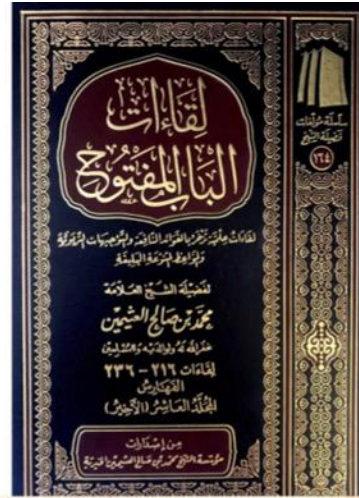 لقاءات
الباب المفتوح
لقاءات علمية تزخر بالفوائد النافعة والتوجيهات التربوية
والمواعظ البليغة
لفضيلة الشيخ العلامة
محمد بن صالح العثيمين
غفر الله له ولوالديه وللمسلمين
لقاءات ٢١٦ - ٢٣٦
الفهارس
المجلد العاشر (الأخير)
من إصدارات
مؤسسة الشيخ محمد بن صالح العثيمين الخيرية
سلسلة مؤلفات
فضيلة الشيخ
١٦٤